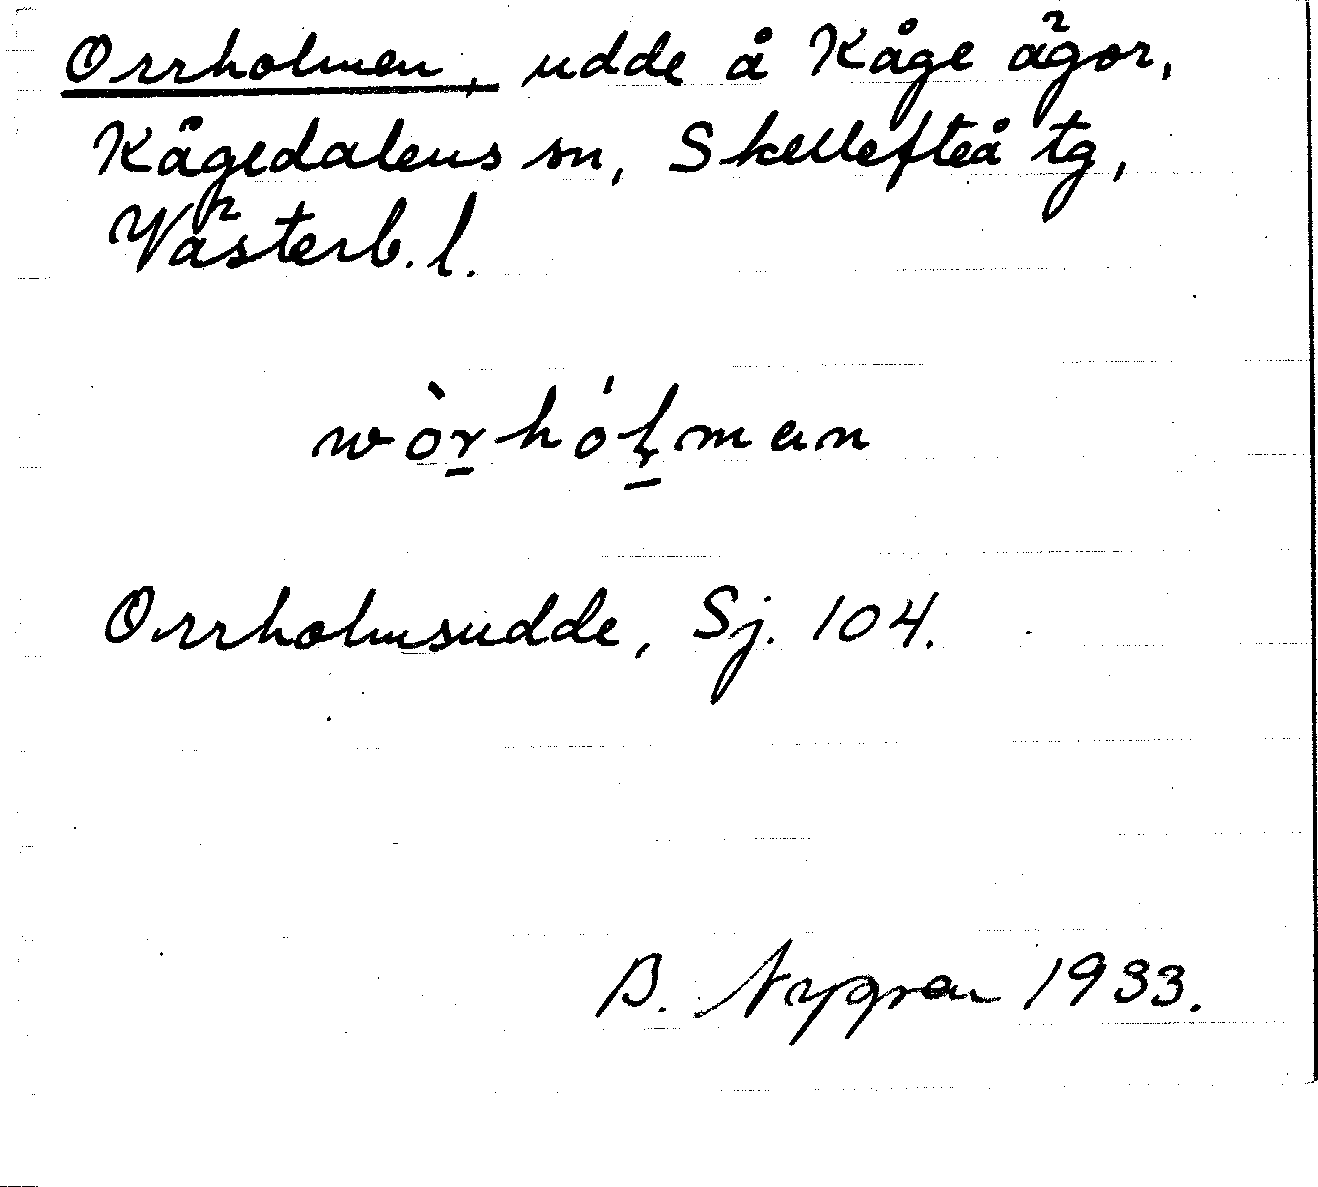 Orrholmen, udde å Kåge ägor,
Kågedalens sn, Skellefteå tg,
Västerb. l.
wòr̲hóɭ̲man
Orrholmsudde, Sj. 104.
B. Nygren 1933.